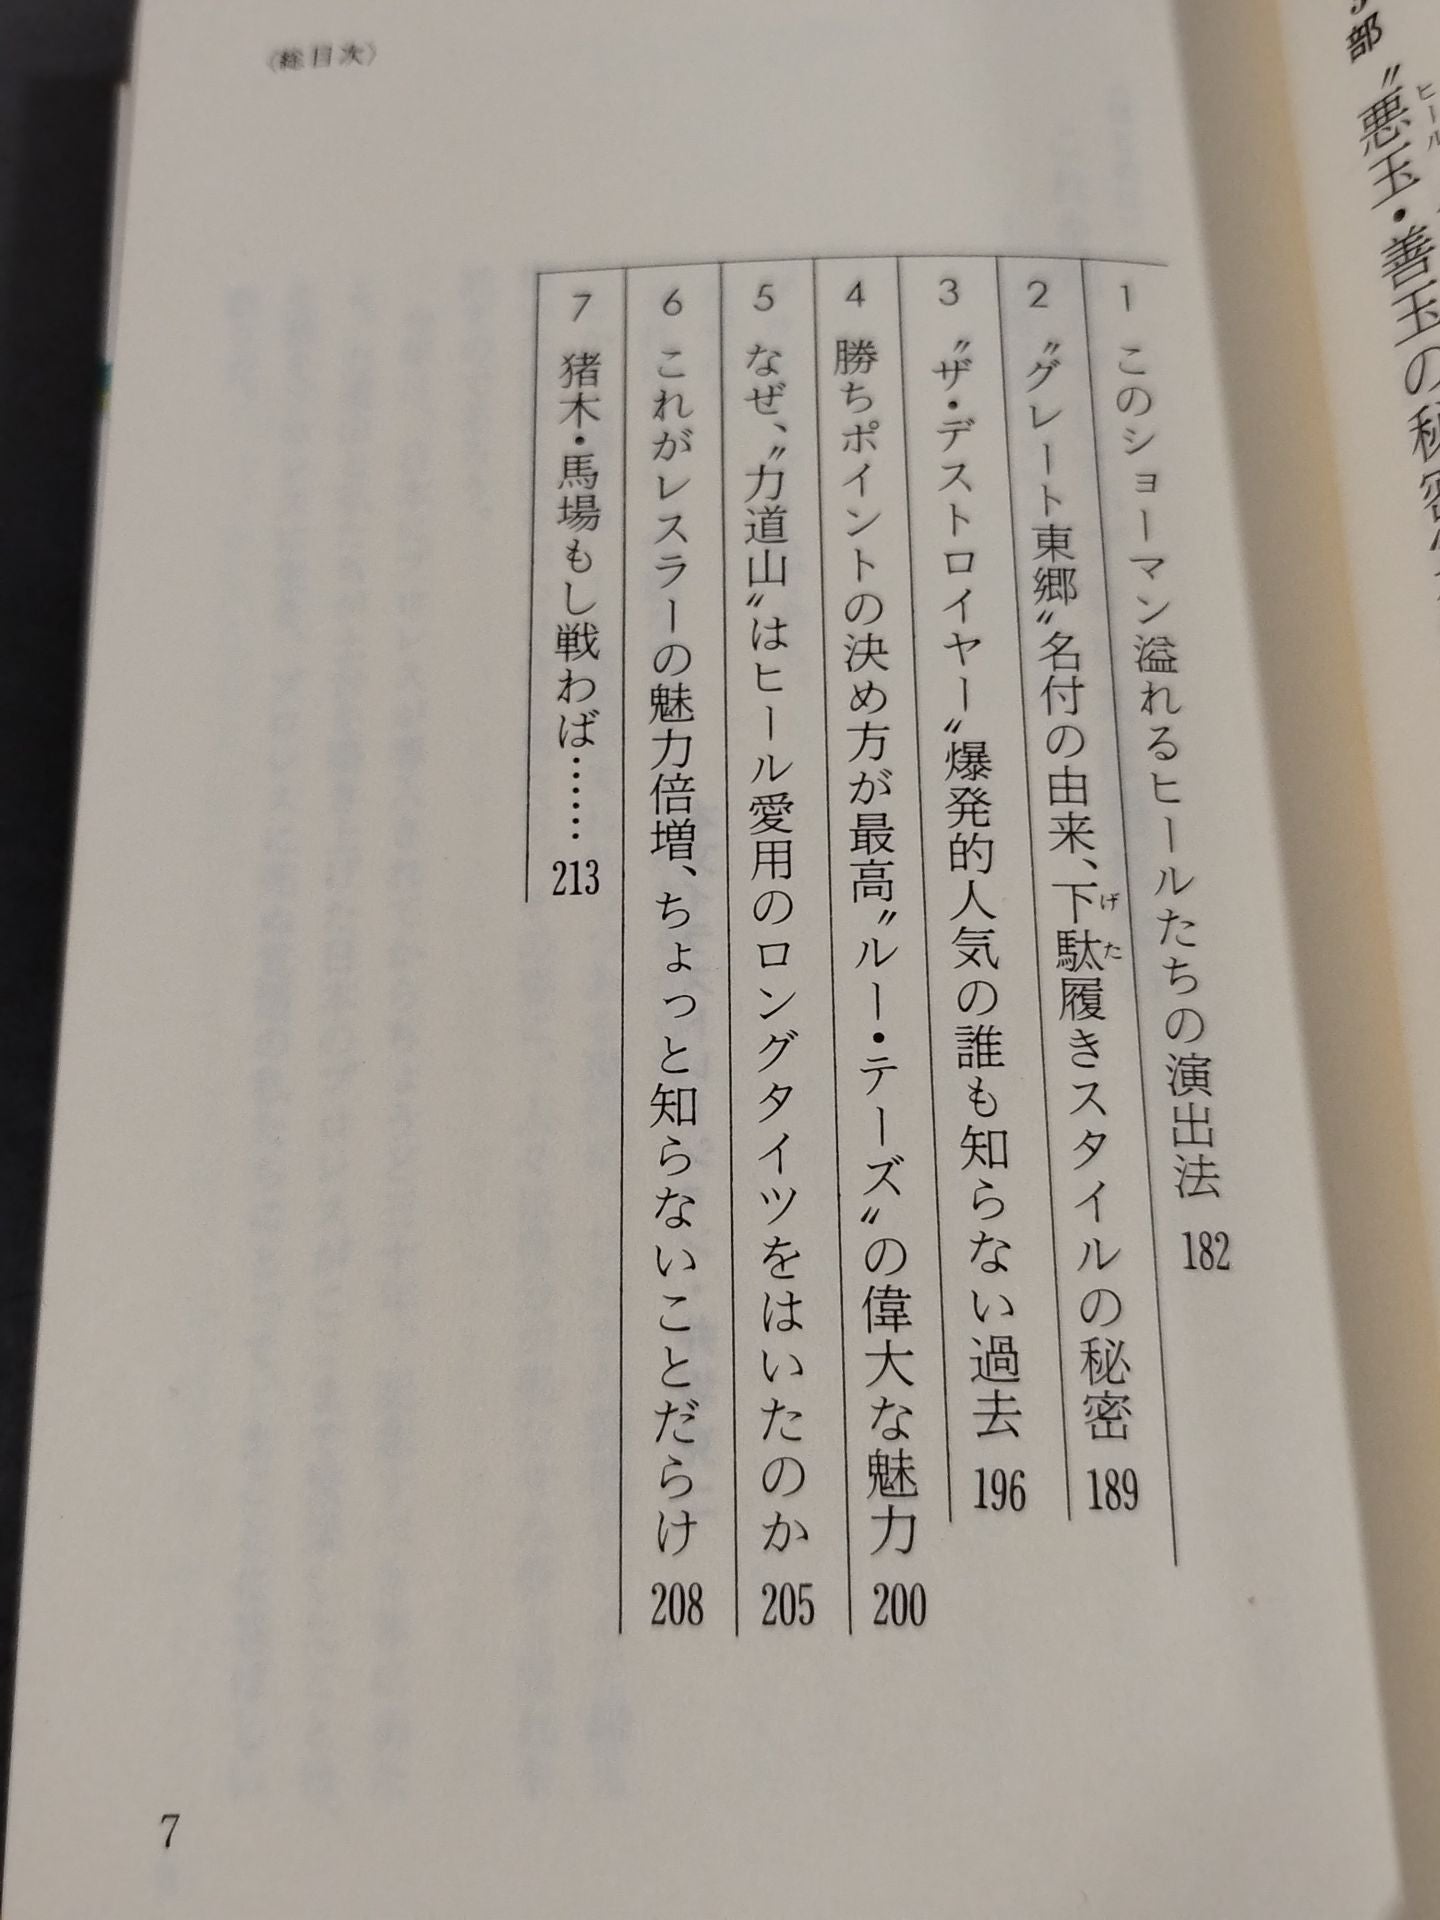 〈総目次〉
部 〝悪玉・善玉の秘密
ヒール
1 このショーマン溢れるヒールたちの演出法 182
2 〝グレート東郷〟名付の由来、下駄履きスタイルの秘密 189
げた
3 〝ザ・デストロイヤー〟爆発的人気の誰も知らない過去 196
4 勝ちポイントの決め方が最高〝ルー・テーズ〟の偉大な魅力 200
5 なぜ、〝力道山〟はヒール愛用のロングタイツをはいたのか 205
6 これがレスラーの魅力倍増、ちょっと知らないことだらけ 208
7 猪木・馬場もし戦わば…… 213
7